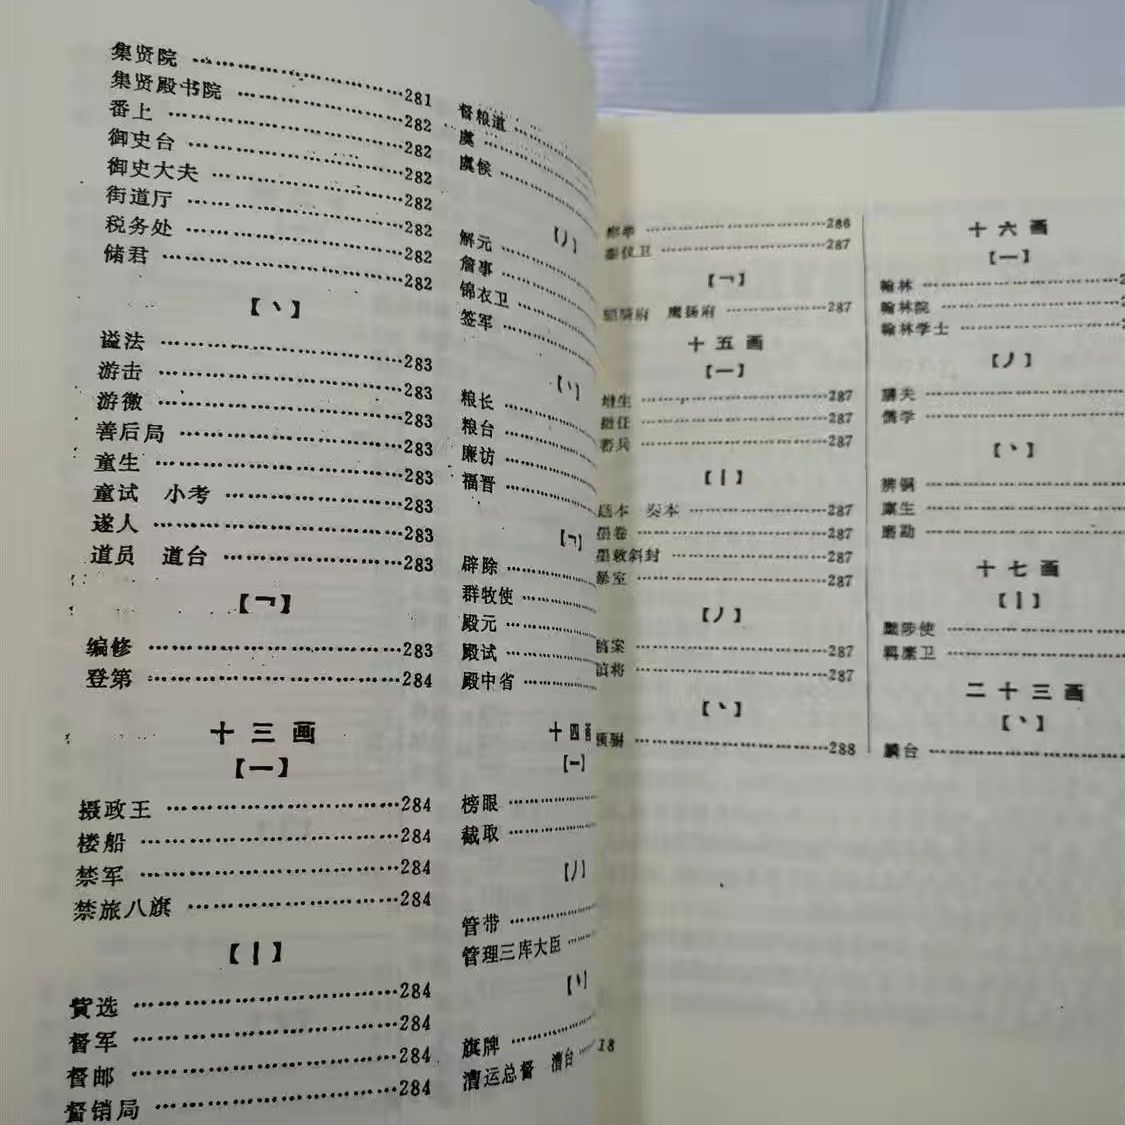 集贤院 …………281
集贤殿书院 …………282
番上 …………282
御史台 …………282
御史大夫 …………282
街道厅 …………282
税务处 …………282
储君 …………282
【丶】
谥法 …………283
游击 …………283
游徼 …………283
善后局 …………283
童生 …………283
童试 小考 …………283
遂人 …………283
道员 道台 …………283
【乛】
编修 …………283
登第 …………284
十三画
【一】
摄政王 …………284
楼船 …………284
禁军 …………284
禁旅八旗 …………284
【丨】
赀选 …………284
督军 …………284
督邮 …………284
督销局 …………284
督粮道 …………
虞 …………
虞候 …………
【丿】
解元 …………
詹事 …………
锦衣卫 …………
签军 …………
【丶】
粮长 …………
粮台 …………
廉访 …………
福晋 …………
【乛】
辟除 …………
群牧使 …………
殿元 …………
殿试 …………
殿中省 …………
十四画
【一】
榜眼 …………
截取 …………
【丿】
管带 …………
管理三库大臣 …………
【丶】
旗牌 …………
漕运总督 漕台 …………
18
…………286
仪卫 …………287
【乛】
骑府 鹰扬府 …………287
十五画
【一】
增生 …………287
…………287
兵 …………287
【丨】
题本 奏本 …………287
墨卷 …………287
墨敕斜封 …………287
暴室 …………287
【丿】
稿案 …………287
镇将 …………287
【丶】
颜驸 …………288
十六画
【一】
翰林 …………
翰林院 …………
翰林学士 …………
【丿】
膳夫 …………
儒学 …………
【丶】
辨铜 …………
廪生 …………
磨勘 …………
十七画
【丨】
黜陟使 …………
羁縻卫 …………
二十三画
【丶】
麟台 …………